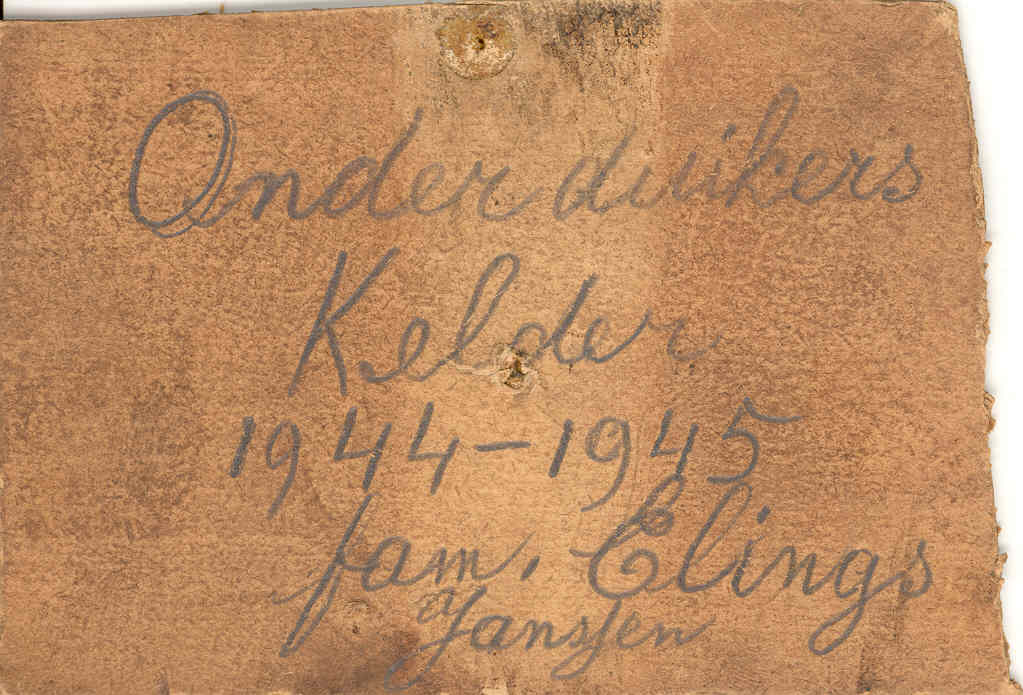 Onder duikers
Kelder
1944-1945
fam. Elings
Janssen